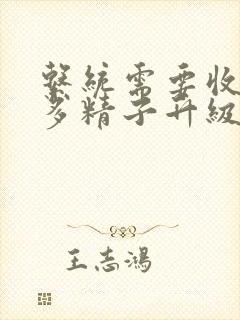 繫統需要收
多精子升級
王志鴻